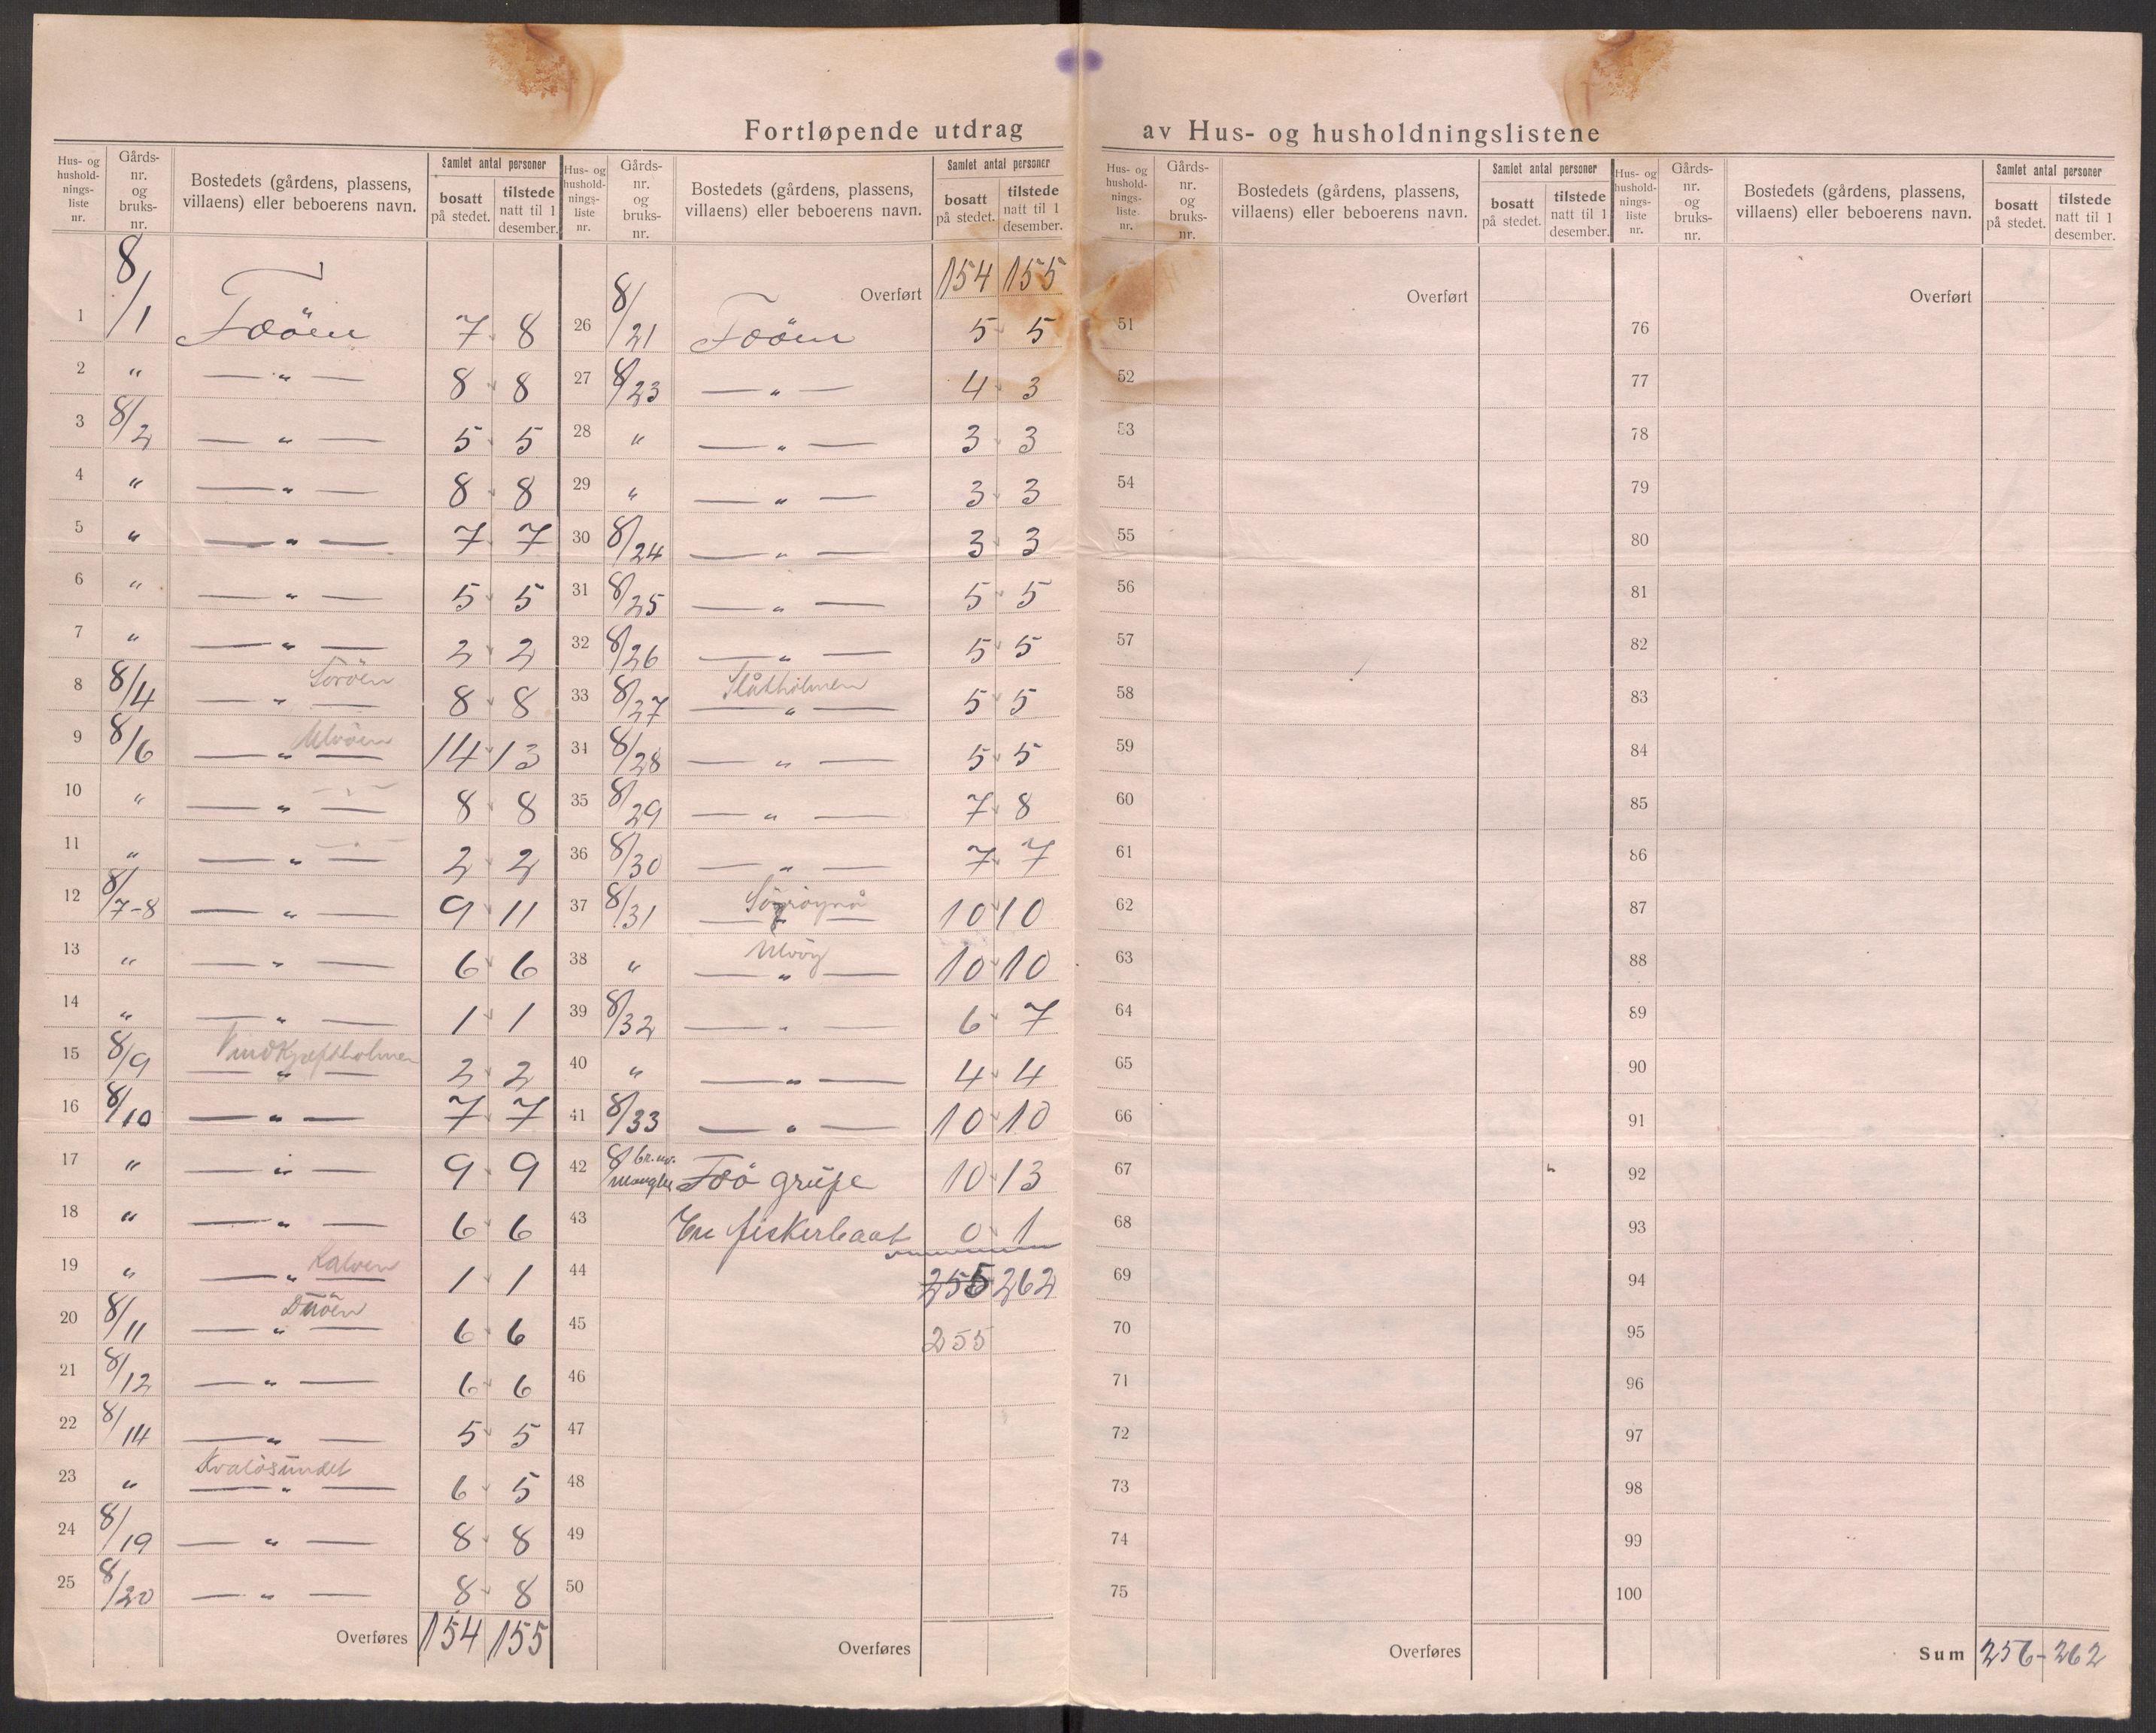 Fortløpende utdrag av Hus- og husholdningslistene
Hus- og husholdnings-liste nr. Gårds-nr. og bruks-nr. Bostedets (gårdens, plassens, villaens) eller beboerens navn. Samlet antal personer bosatt på stedet. tilstede natt til 1 desember.
1 8/1 Foöen 7 8
2 " — " — 8 8
3 8/2 — " — 5 5
4 " — " — 8 8
5 " — " — 7 7
6 " — " — 5 5
7 " — " — 2 2
8 8/4 — " — Søröen 8 8
9 8/6 — " — Ulvöen 14 13
10 " — " — 8 8
11 " — " — 2 2
12 8/7-8 — " — 9 11
13 " — " — 6 6
14 " — " — 1 1
15 8/9 — " — Vindkjæftholmen 2 2
16 8/10 — " — 7 7
17 " — " — 9 9
18 " — " — 6 6
19 " — " — Kalven 1 1
20 8/11 — " — 6 6
21 8/12 — " — 6 6
22 8/14 — " — 5 5
23 " — " — Kvalösundet 6 5
24 8/19 — " — 8 8
25 8/20 — " — 8 8
Overføres 154 155
Hus- og husholdnings-liste nr. Gårds-nr. og bruks-nr. Bostedets (gårdens, plassens, villaens) eller beboerens navn. Samlet antal personer bosatt på stedet. tilstede natt til 1 desember.
Overført 154 155
26 8/21 Foöen 5 5
27 8/23 — " — 4 3
28 " — " — 3 3
29 " — " — 3 3
30 8/24 — " — 3 3
31 8/25 — " — 5 5
32 8/26 — " — 5 5
33 8/27 — " — Slåtholmen 5 5
34 8/28 — " — 5 5
35 8/29 — " — 7 8
36 8/30 — " — 7 7
37 8/31 — " — 10 10
38 " — " — Ulvöy 10 10
39 8/32 — " — 6 7
40 " — " — 4 4
41 8/33 — " — 10 10
42 8 br.nr. mangler Foö grupe 10 13
43 En fiskerbaat 0 1
44 262
45 255
46
47
48
49
50
Overføres
Hus- og husholdnings-liste nr. Gårds-nr. og bruks-nr. Bostedets (gårdens, plassens, villaens) eller beboerens navn. Samlet antal personer bosatt på stedet. tilstede natt til 1 desember.
Overført
51
52
53
54
55
56
57
58
59
60
61
62
63
64
65
66
67
68
69
70
71
72
73
74
75
Overføres
Hus- og husholdnings-liste nr. Gårds-nr. og bruks-nr. Bostedets (gårdens, plassens, villaens) eller beboerens navn. Samlet antal personer bosatt på stedet. tilstede natt til 1 desember.
Overført
76
77
78
79
80
81
82
83
84
85
86
87
88
89
90
91
92
93
94
95
96
97
98
99
100
Sum 256 - 262